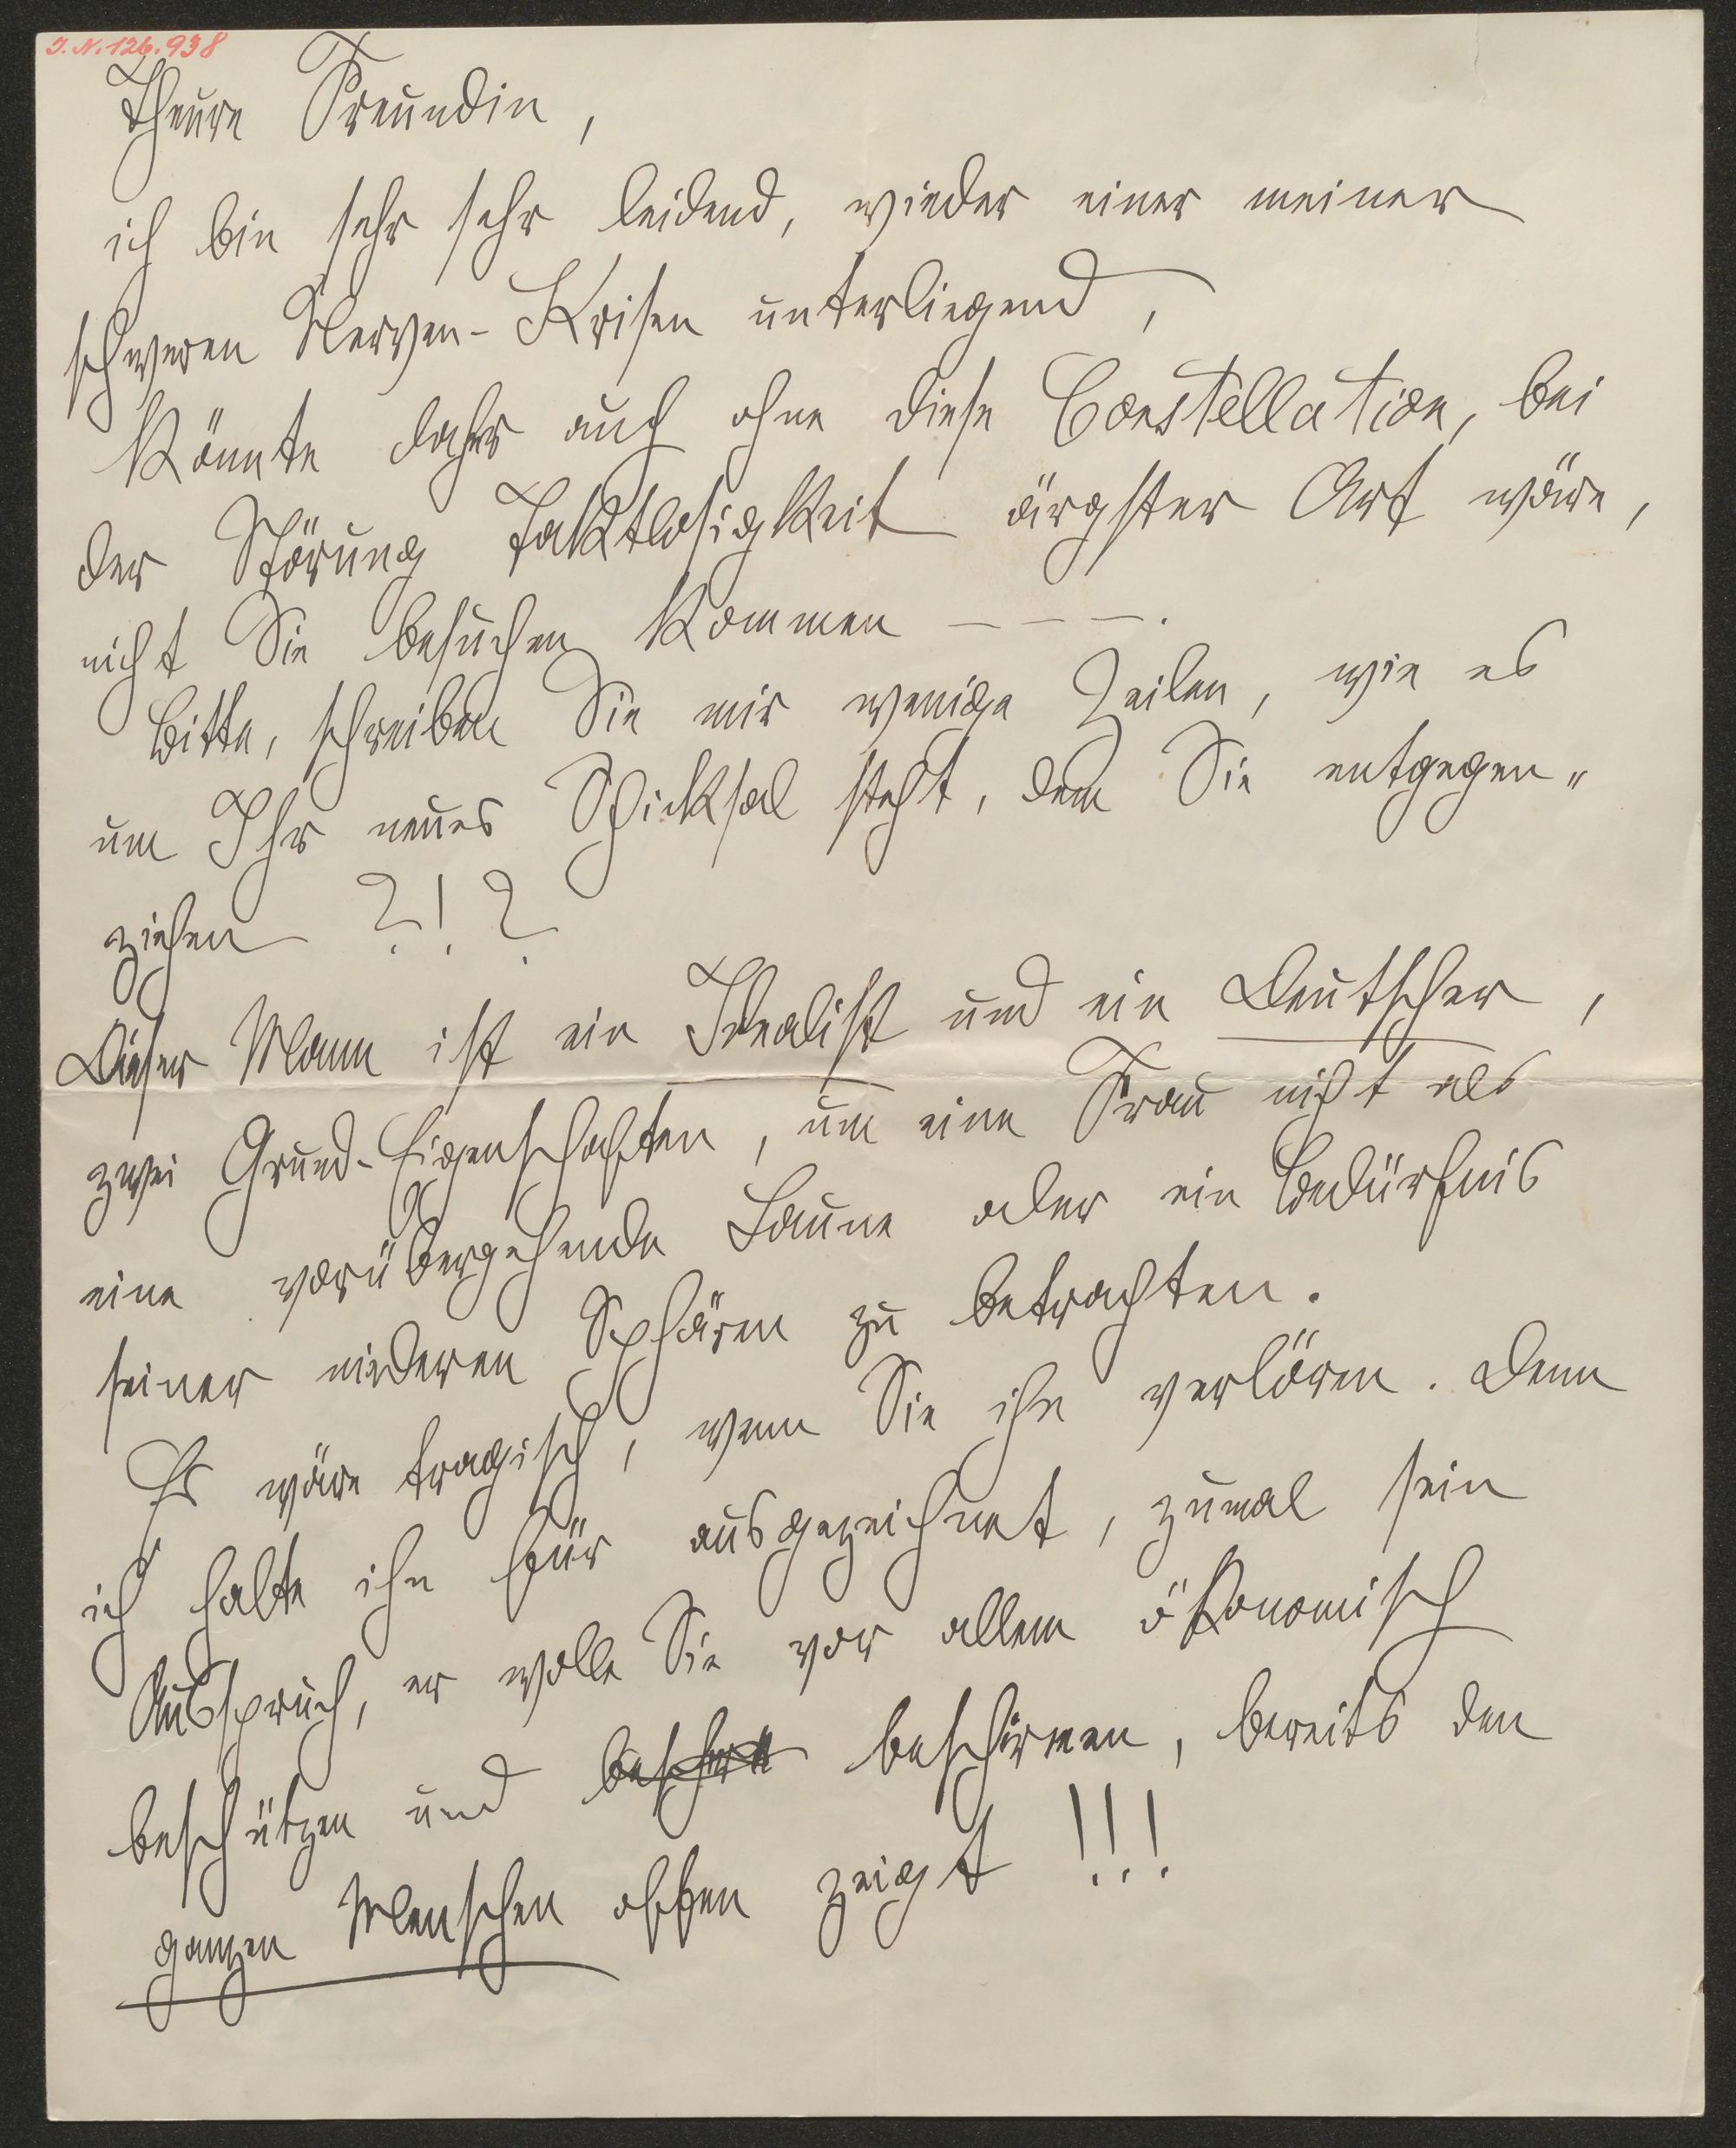 I. N. 126.938
Theure Freundin,
ich bin sehr sehr leidend, wieder einer meiner
schweren Nerven-Krisen unterliegend,
könnte daher auch ohne diese Constellation, bei
der Störung Taktlosigkeit ärgster Art wäre,
nicht Sie besuchen kommen – – – .
Bitte, schreiben Sie mir wenige Zeilen, wie es
um Ihr neues Schicksal steht, dem Sie entgegen„
ziehen ?!?
Dieser Mann ist ein Idealist und ein Deutscher,
zwei Grund-Eigenschaften, um eine Frau nicht als
eine vorübergehende Laune oder ein Bedürfnis
seiner niederen Sphären zu betrachten.
Es wäre tragisch, wenn Sie ihn verlören. Denn
ich halte ihn für ausgezeichnet, zumal sein
Ausspruch, er wolle Sie vor allem ökonomisch
beschützen und beschirmen, bereits den
ganzen Menschen offen zeigt !!!